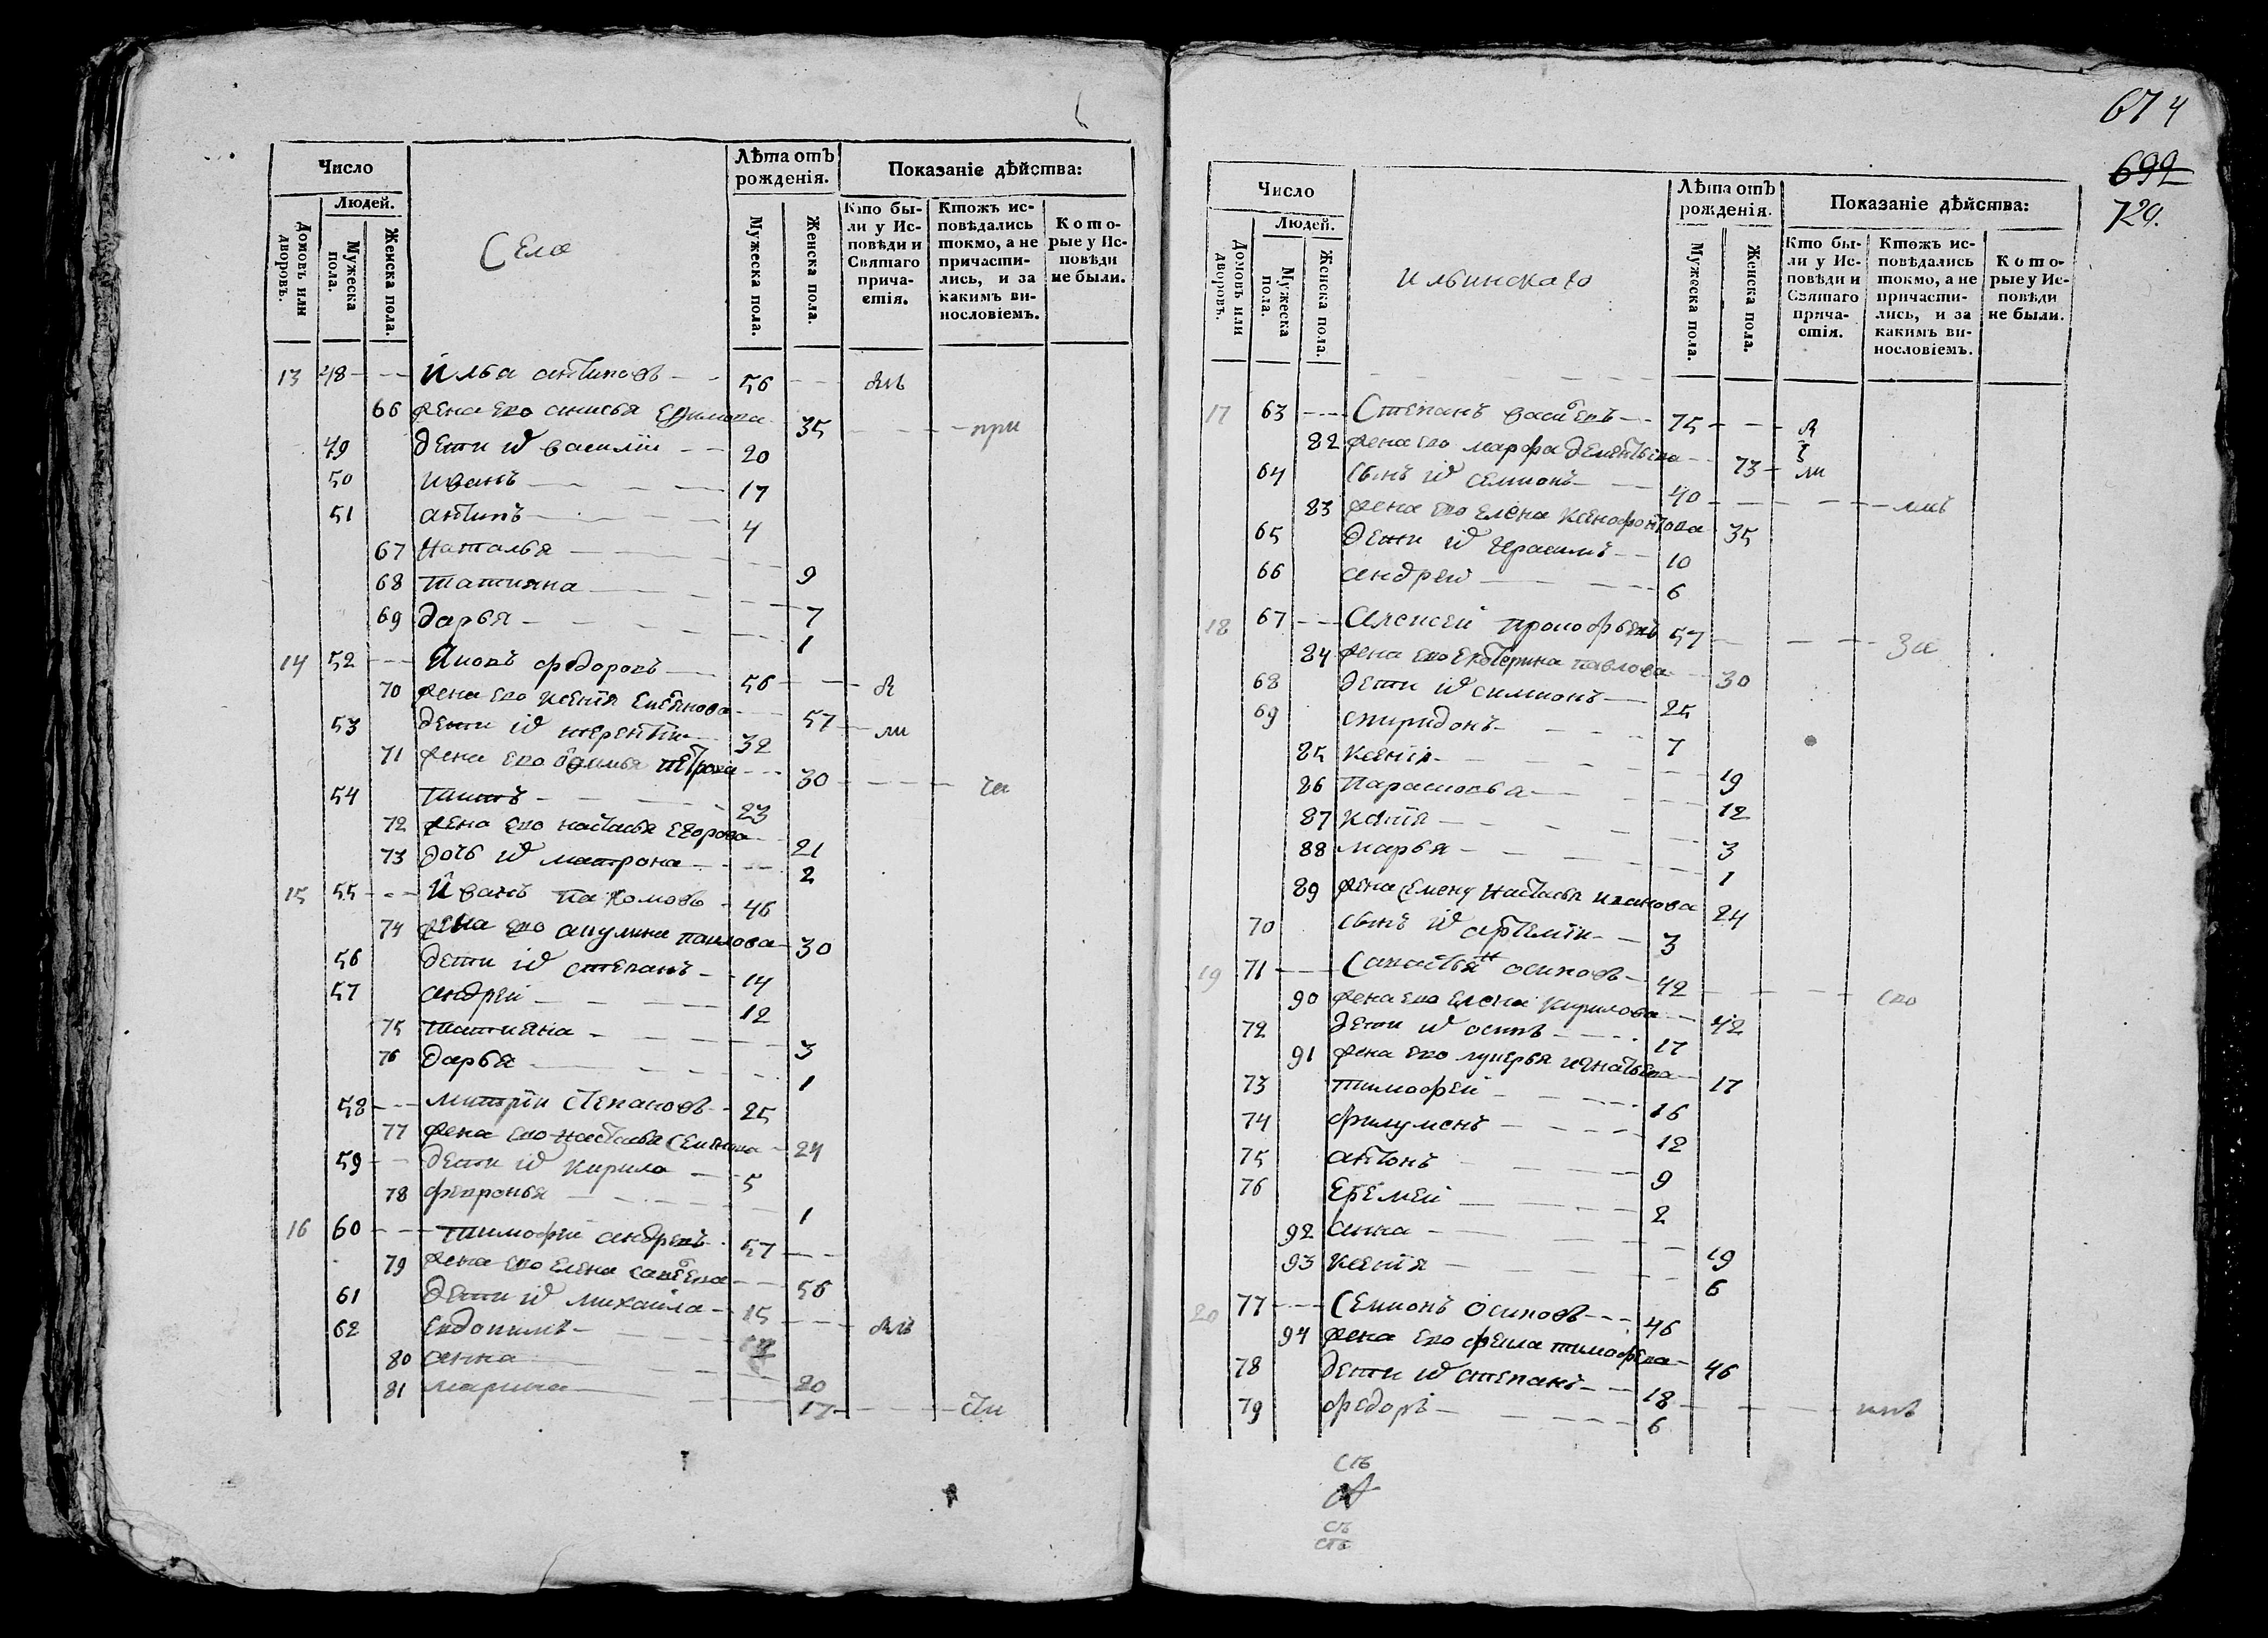 Число
Людей.
Домовъ или дворовъ.
Мужеска пола.
Женска пола.
Села
Лѣта отъ рожденія.
Мужеска пола.
Женска пола.
Показаніе дѣйства:
Кто были у Исповѣди и Святаго причастія.
Ктожъ исповѣдались токмо, а не причастились, и за какимъ винословіемъ.
Которые у Исповѣди не были.
13 48 Илья антиповъ 56
66 жена его анисья Ефимова 35 при
49 дети их василіи 20
50 иванъ 17
51 антипъ 4
67 Наталья 9
68 татияна 7
69 дарья 1
14 52 Яковъ федоровъ 56
70 жена его ксенія 57 ли
53 дети их терентіи 32
71 жена его петрова 30
54 титъ 23
72 жена его настасья Егорова 21
73 дочь их матрона 2
15 55 Иванъ пахомовъ 46
74 жена его акулина павлова 30
56 дети их степанъ 14
57 андреи 12
75 татияна 3
76 дарья 1
58 митріи степановъ 25
77 жена его настасья 24
59 дети их кирила 5
78 февронья 1
16 60 тимофіи андревъ 57
79 жена его елена савеева 56
61 дети их михаила 15
62 евдокимъ
80 анна 20
81 марина 17 сти
674
699
729.
Число
Людей.
Домовъ или дворовъ.
Мужеска пола.
Женска пола.
ильинскаго
Лѣта отъ рожденія.
Мужеска пола.
Женска пола.
Показаніе дѣйства:
Кто были у Исповѣди и Святаго причастія.
Ктожъ исповѣдались токмо, а не причастились, и за какимъ винословіемъ.
Которые у Исповѣди не были.
17 63 Степанъ васиевъ 75
82 жена его марфа дементьева 73 ли
64 сынъ их семионъ 40
83 жена его елена ксенофонтова 35
65 дети их 10
66 андреи 6
18 67 Алексеи прокофьевъ 57 За
84 жена его екатерина павлова 30
68 дети их симионъ 25
69 спиридонъ 7
85 ксенія 19
86 Парасковья 12
87 3
88 марья 1
89 жена семену настасья иванова 24
70 сынъ их артеміи 3
19 71 осиповъ 42
90 жена его елена кирилова 42
72 дети их осипъ 17
91 жена его лукерья игнатьева 17
73 тимофеи 16
74 филумонъ 12
75 антонъ 9
76 Еремеи 2
92 анна 19
93 ксенія 6
20 77 Семионъ осиповъ 46
94 жена его фекла тимофева 46
78 дети их степанъ 18
79 федоръ 6